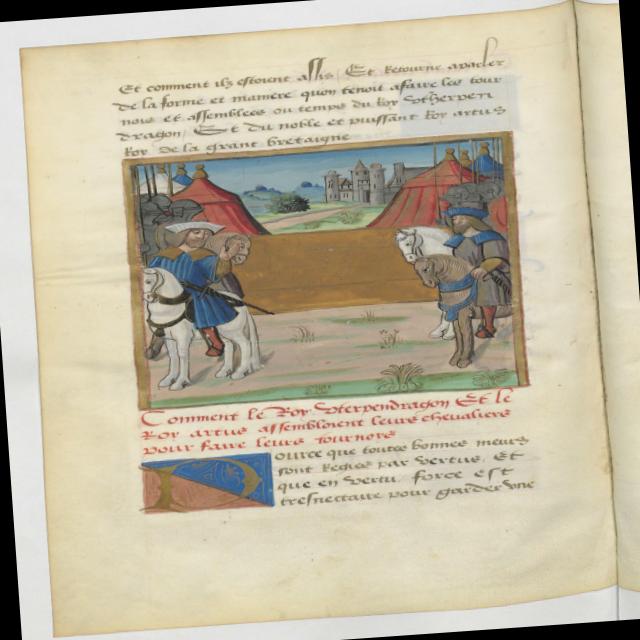 Et comment ilz estoient assis Et Retourne aparler
de la forme et maniere quon tenoit afaire les tour
nois et assemblees ou temps du Roy Vtherpen
dragon Et du noble et puissant Roy artus
Roy de la grant bretaigne
Comment le Roy Vterpendragon Et le
Roy artus assembloient leurs chevaliers
pour faire leurs tournoys
Pource que toutes bonnes meurs
sont Regies par vertus Et
que en vertu force est
tresnectaire pour garder vne